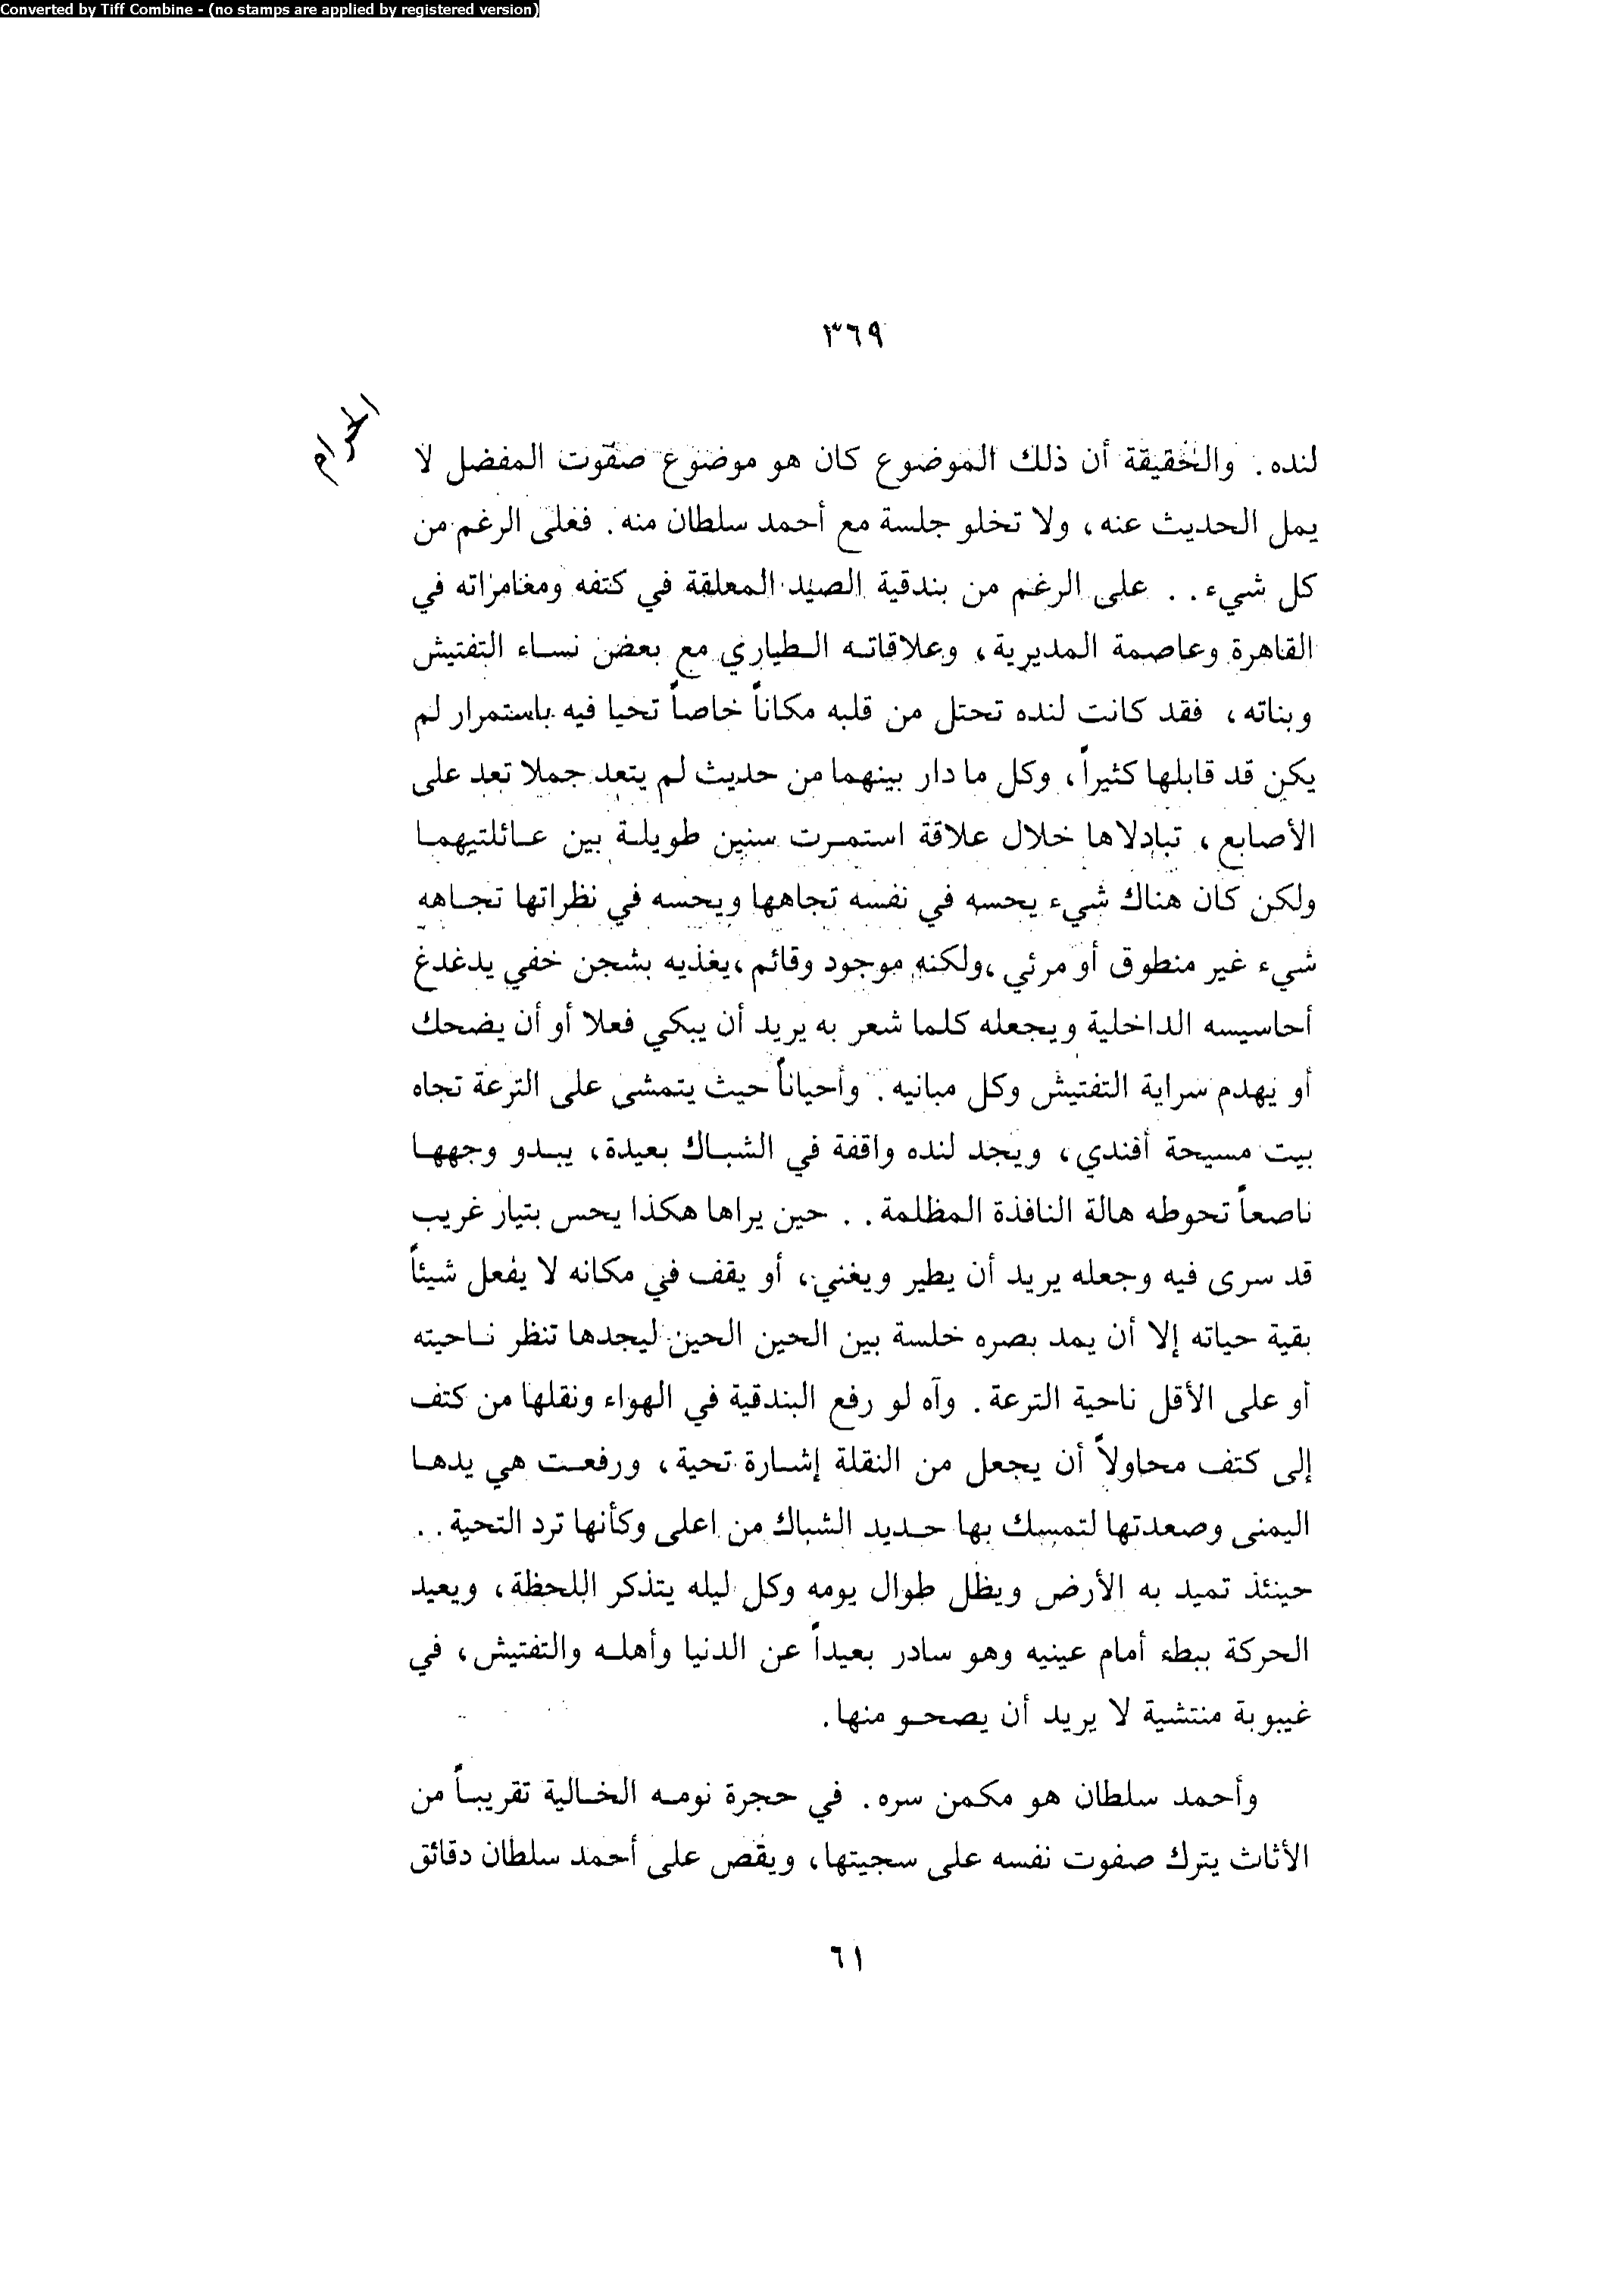 Converted by Tiff Combine - (no stamps are applied by registered version)
٣٦٩
الحرام
لنده. والحقيقة أن ذلك الموضوع كان هو موضوع صفوت المفضل لا
يمل الحديث عنه، ولا تخلو جلسة مع أحمد سلطان منه. فعلى الرغم من
كل شيء.. على الرغم من بندقية الصيد المعلقة في كتفه ومغامراته في
القاهرة وعاصمة المديرية، وعلاقاته الطياري مع بعض نساء التفتيش
وبناته، فقد كانت لنده تحتل من قلبه مكاناً خاصاً تحيا فيه باستمرار لم
يكن قد قابلها كثيراً، وكل ما دار بينهما من حديث لم يتعد جملا تعد على
الأصابع، تبادلاها خلال علاقة استمرت سنين طويلة بين عائلتيهما
ولكن كان هناك شيء يحسه في نفسه تجاهها ويحسه في نظراتها تجاهه
شيء غير منطوق أو مرئي، ولكنه موجود وقائم، يغذيه بشجن خفي يدغدغ
أحاسيسه الداخلية ويجعله كلما شعر به يريد أن يبكي فعلا أو أن يضحك
أو يهدم سراية التفتيش وكل مبانيه. وأحياناً حيث يتمشى على الترعة تجاه
بيت مسيحة أفندي، ويجد لنده واقفة في الشباك بعيدة، يبدو وجهها
ناصعاً تحوطه هالة النافذة المظلمة.. حين يراها هكذا يحس بتيار غريب
قد سرى فيه وجعله يريد أن يطير ويغني، أو يقف في مكانه لا يفعل شيئاً
بقية حياته إلا أن يمد بصره خلسة بين الحين الحين ليجدها تنظر ناحيته
أو على الأقل ناحية الترعة. وآه لو رفع البندقية في الهواء ونقلها من كتف
إلى كتف محاولاً أن يجعل من النقلة إشارة تحية، ورفعت هي يدها
اليمنى وصعدتها لتمسك بها حديد الشباك من اعلى وكأنها ترد التحية..
حينئذ تميد به الأرض ويظل طوال يومه وكل ليله يتذكر اللحظة، ويعيد
الحركة ببطء أمام عينيه وهو سادر بعيداً عن الدنيا وأهله والتفتيش، في
غيبوبة منتشية لا يريد أن يصحو منها.
وأحمد سلطان هو مكمن سره. في حجرة نومه الخالية تقريباً من
الأثاث يترك صفوت نفسه على سجيتها، ويقص على أحمد سلطان دقائق
٦١